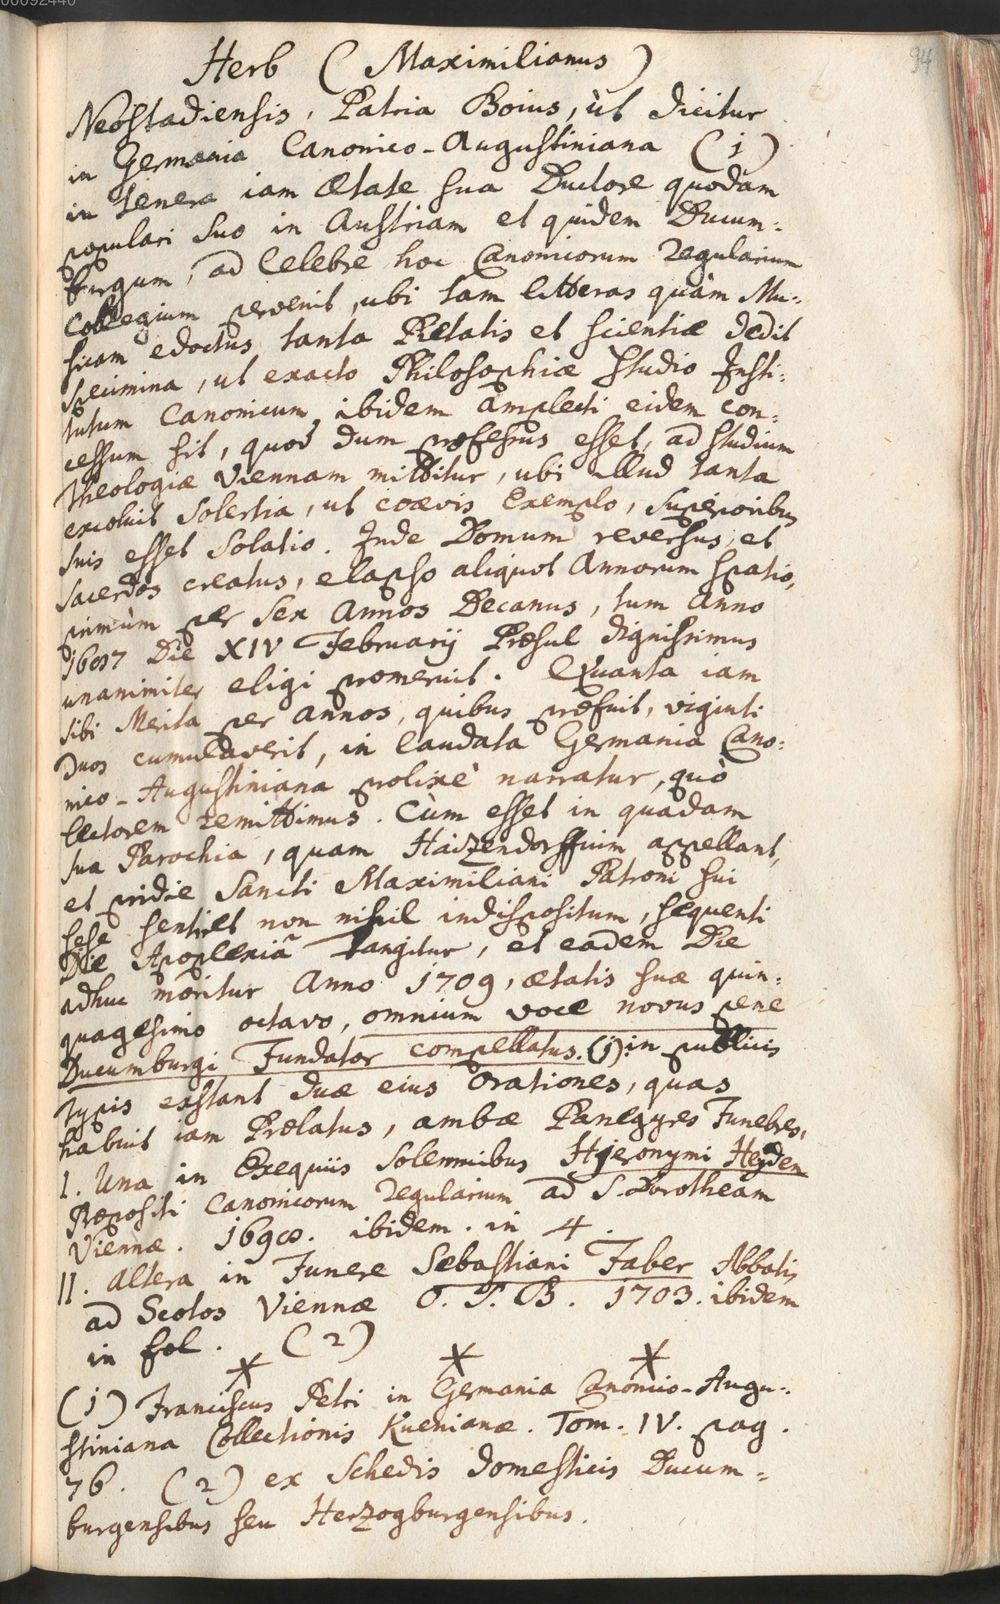 00092440
94
Herb ( Maximilianus )
Neostadiensis, Patria Boius, ùt dicitur
in Germania Canonico-Augustiniana (1)
in tenera iam Ætate sua Ductore quodam
populari suo in Austriam et quidem Ducum-
burgum, ad Celebre hoc Canonicorum Regularium
Collegium pervenit, ubi tam litteras quàm Mu-
sicam edoctus tanta Pietatis et scientiæ dedit
specimina, ut exacto Philosophiæ studio Insti-
tutum Canonicum ibidem amplecti eidem con-
cessum sit, quod dum professus esset, ad studium
Theologiæ Viennam mittitur, ubi illud tanta
excoluit Solertia, ut coævis Exemplo, Superioribus
suis esset Solatio. Inde Domum reversus, et
sacerdos creatus, elapso aliquot Annorum spatio,
primùm per Sex Annos Decanus, tum Anno
1687 Die XIV Februarij Præsul dignissimus
unanimiter eligi promeruit. Quanta iam
sibi Merita per annos, quibus præfuit, viginti
duos cumulaverit, in laudata Germania Cano-
nico-Augustiniana prolixè narratur, quò
lectorem remittimus. Cùm esset in quadam
sua Parochia, quam Haizendorffium appellant,
et pridie Sancti Maximiliani Patroni sui
sese sentiret non nihil indispositum, sequenti
Die Apoplexiâ tangitur, et eadem Die
adhuc moritur Anno 1709, ætatis suæ quin-
quagesimo octavo, omnium voce novus pene
Ducumburgi Fundator compellatus. (1) in publicis
typis exstant duæ eius Orationes, quas
habuit iam Prælatus, ambæ Panegyres Funebres,
I. Una in Exequiis Solemnibus Hieronymi Heyden
Præpositi Canonicorum Regularium ad S. Dorotheam
Viennæ. ibidem. in 4.
II. Altera in Funere Sebastiani Faber Abbatis
ad Scotos Viennæ O. S. B. 1703. ibidem
in fol. (2)
(1) Franciscus Petri in Germania Canonico-Augu-
stiniana Collectionis Kuenianæ. Tom. IV. pag.
76. (2) ex Schedis domesticis Ducum-
burgensibus seu Herzogburgensibus.